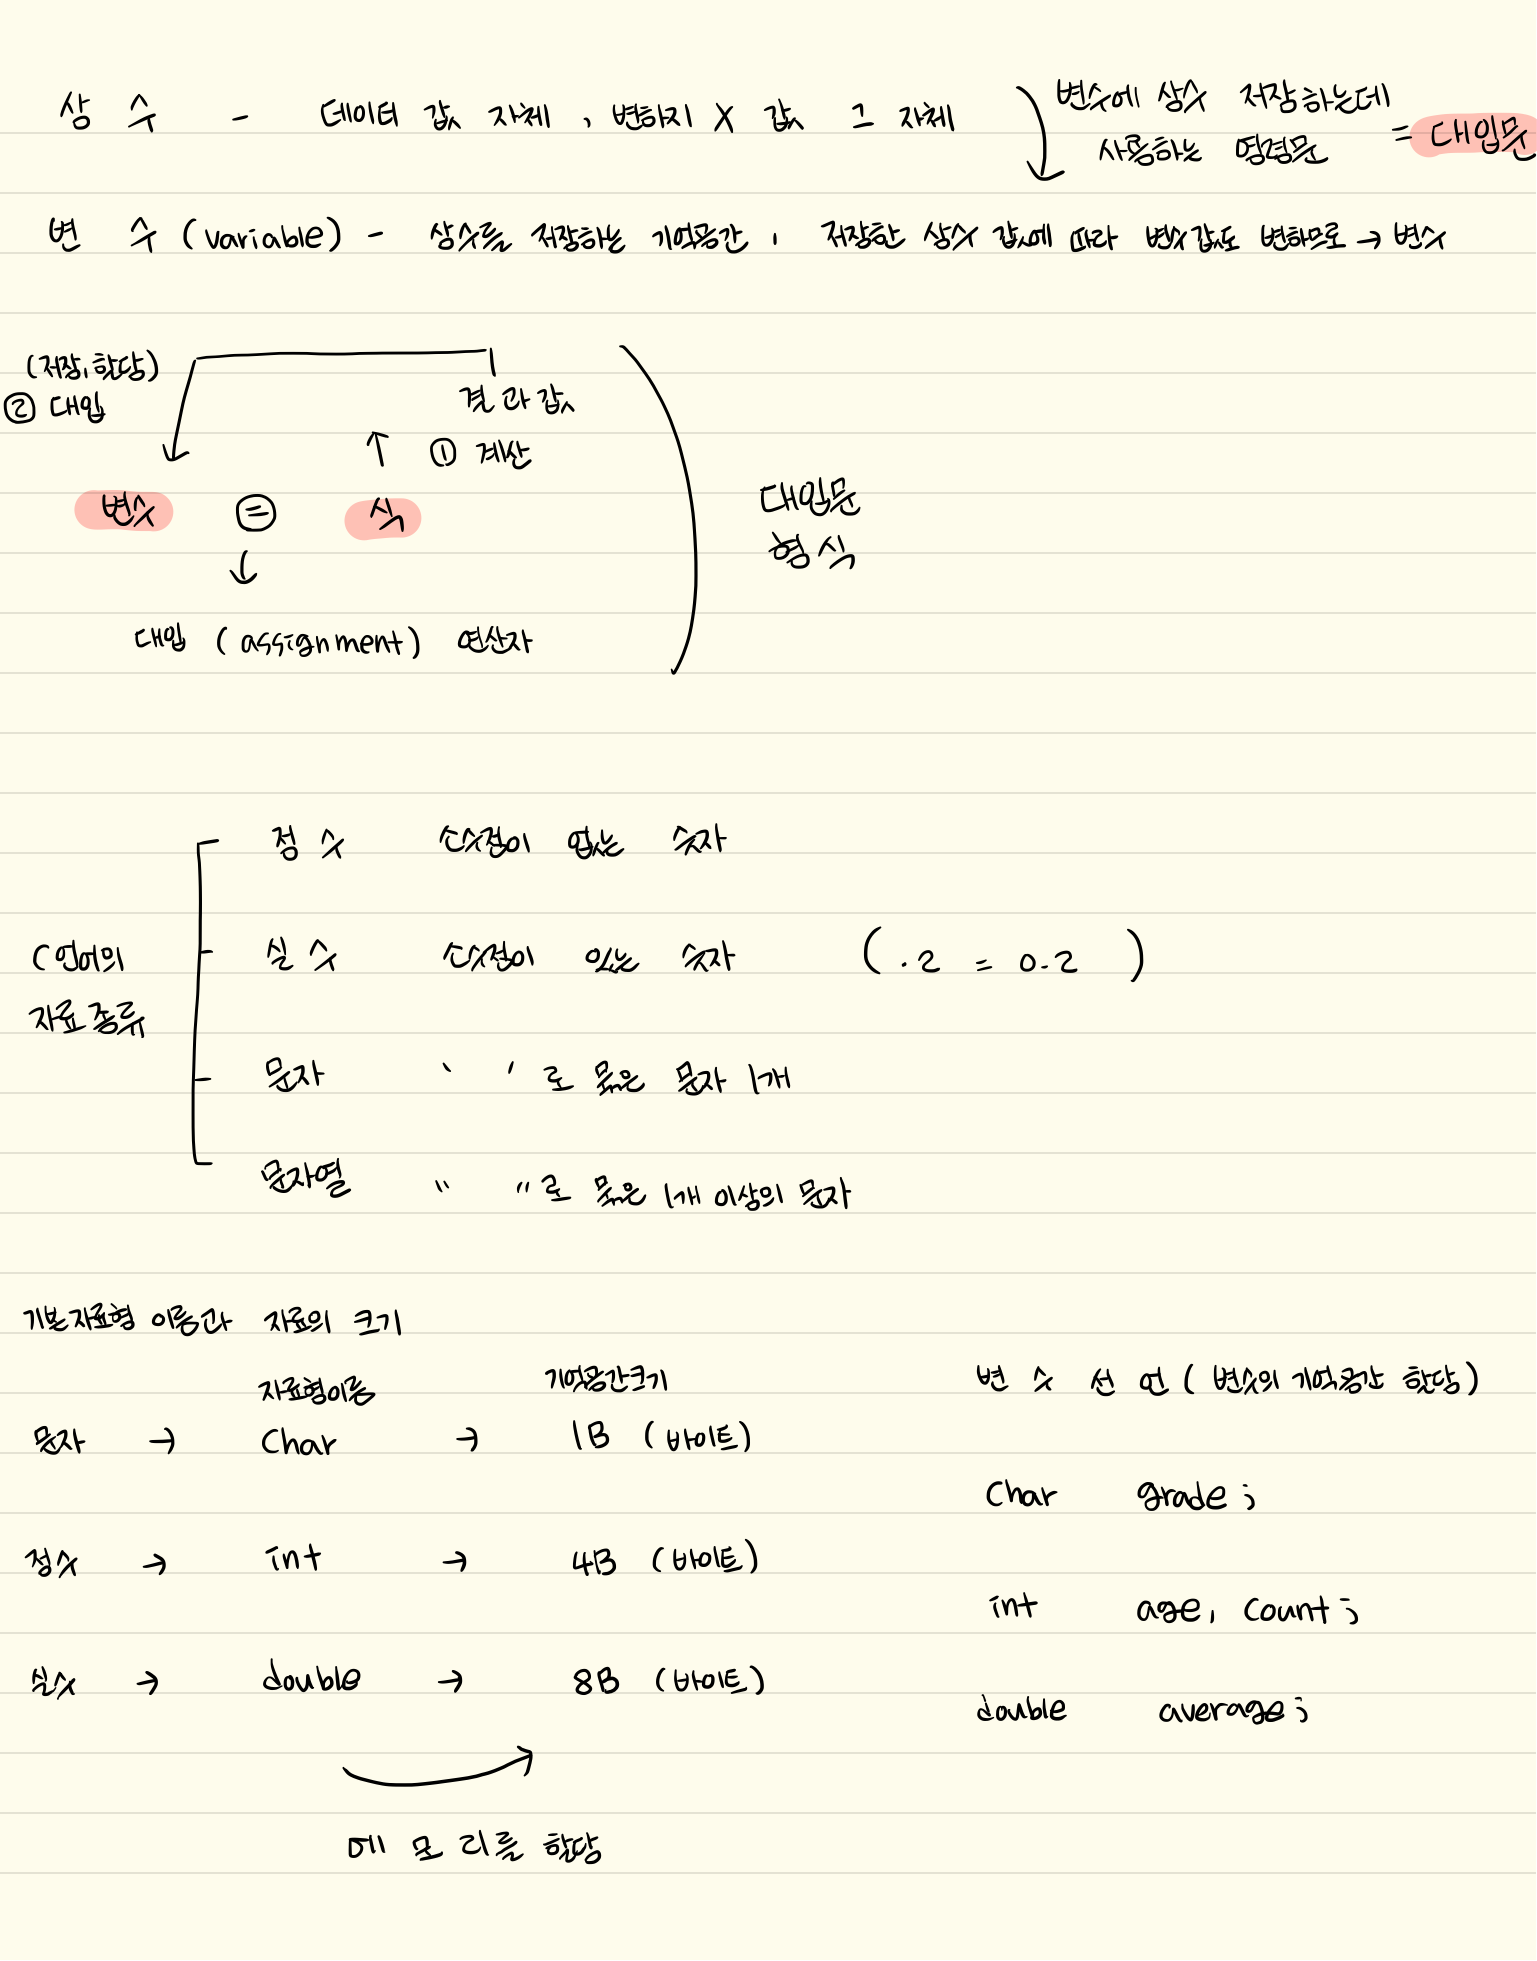 상수 - 데이터 값 자체, 변하지 X 값 그 자체
변수에 상수 저장하는데
사용하는 명령문 = 대입문
변수 (variable) - 상수를 저장하는 기억공간, 저장한 상수 값에 따라 변수값도 변하므로 → 변수
(저장, 할당)
② 대입
결과값
↑ ① 계산
변수 = 식
↓
대입 (assignment) 연산자
대입문
형식
C 언어의
자료 종류
정수 소수점이 없는 숫자
실수 소수점이 있는 숫자 ( .2 = 0.2 )
문자 ‘ ’ 로 묶은 문자 1개
문자열 “ ” 로 묶은 1개 이상의 문자
기본자료형 이름과 자료의 크기
자료형이름 기억공간크기
문자 → Char → 1B (바이트)
정수 → int → 4B (바이트)
실수 → double → 8B (바이트)
메모리를 할당
변수 선언 ( 변수의 기억공간 할당 )
Char grade ;
int age, count ;
double average ;